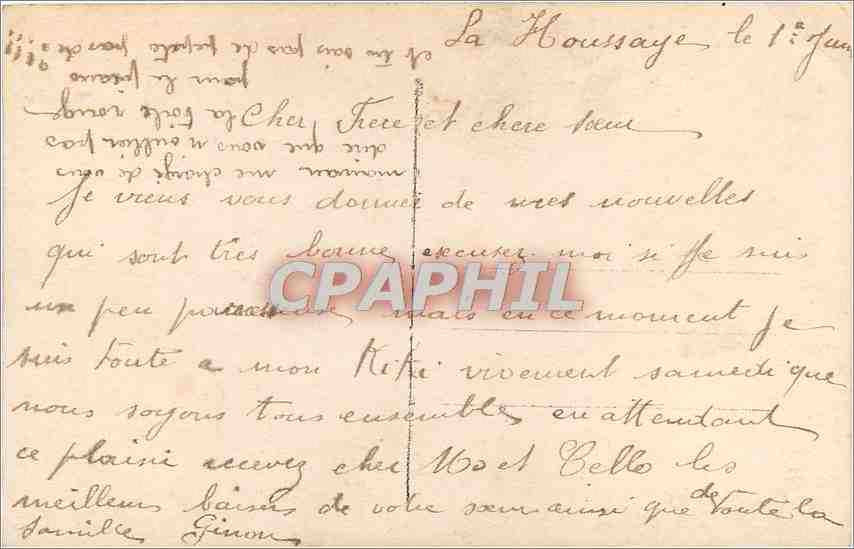 La Houssaye le 1er Juin
Cher Frere et chere sœur
Je viens vous donner de mes nouvelles
qui sont très bonne excusez moi si Je suis
un peu paresseuse mais en ce moment Je
suis toute a mon KiKi vivement samedi que
nous soyons tous ensembles en attendant
ce plaisi recevez cher et Tello les
meilleurs baisers de votre sœur ainsi que de toute la
famille Ginou
maman me charge de vous
dire que vous n oublier pas
la toile rouge
pour le piano
et tu sais pas de pas de !!!
CPAPHIL